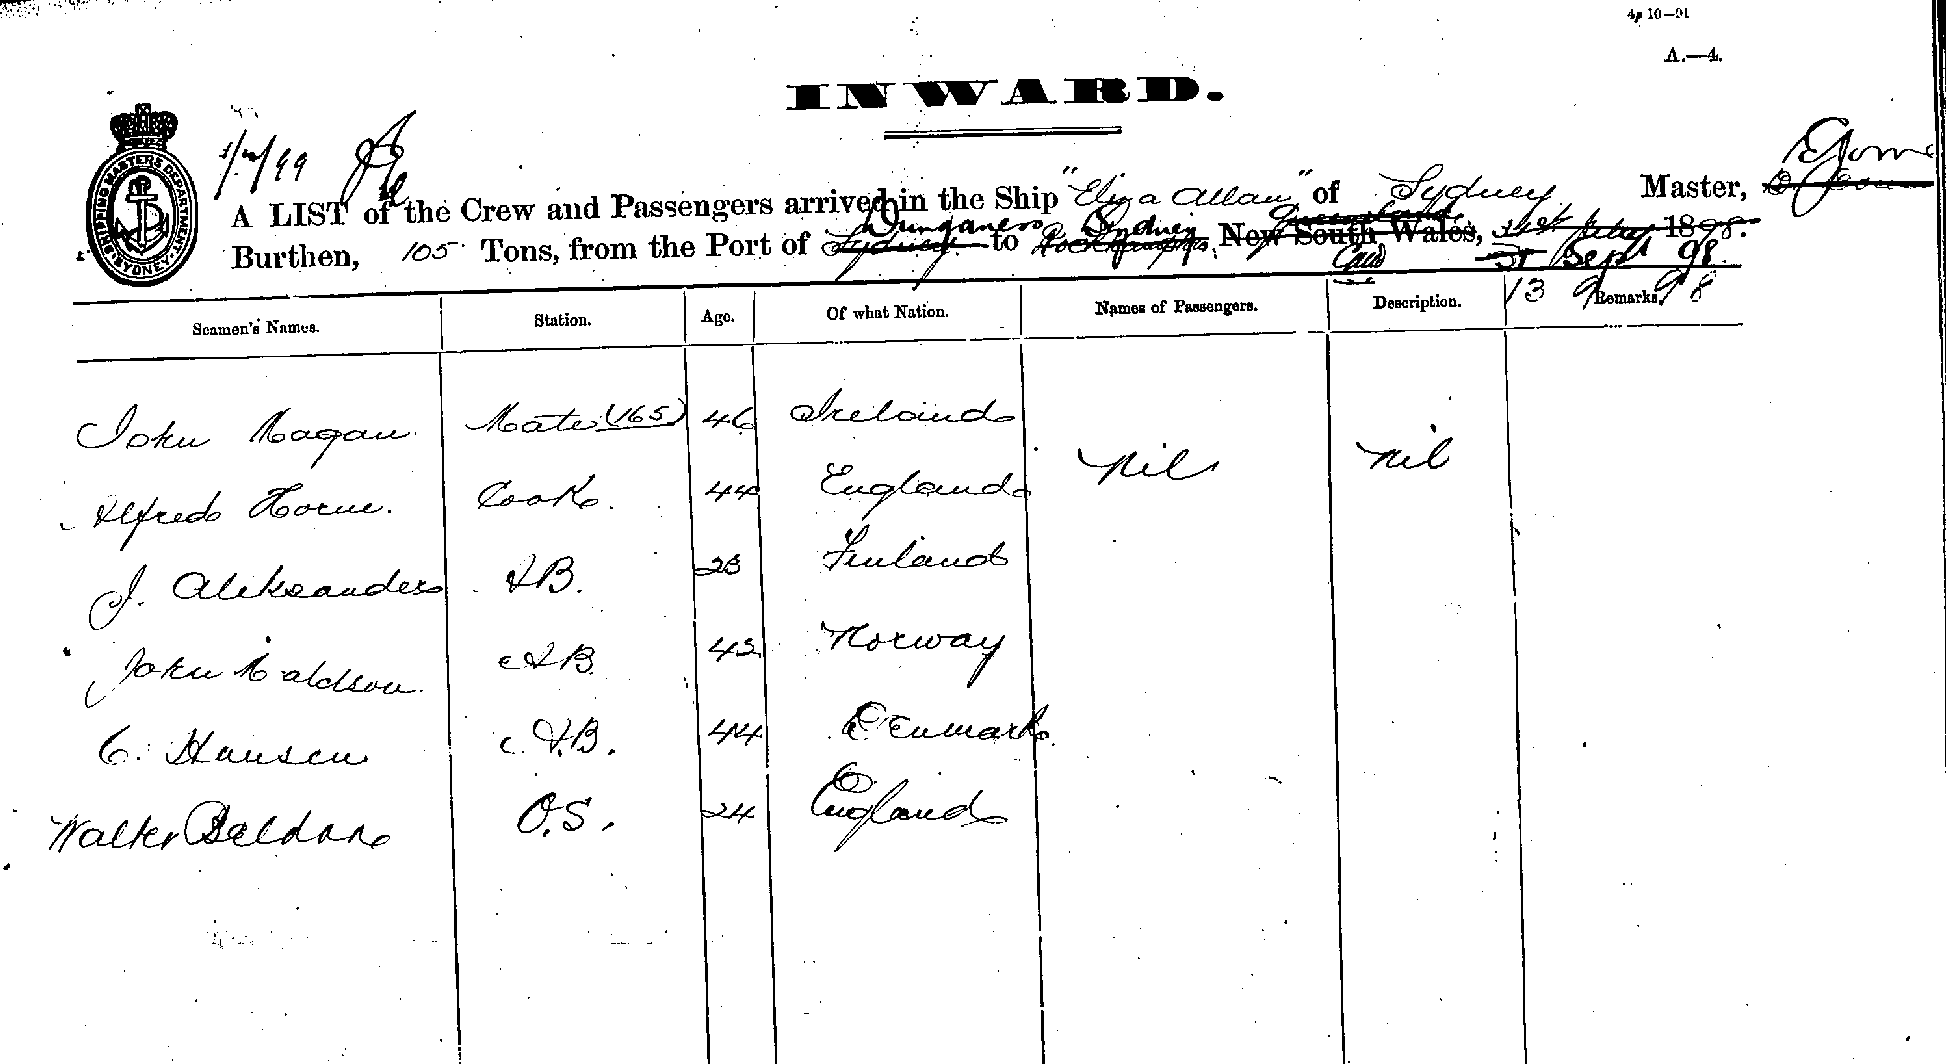 4p 10—91
A.—4.
INWARD.
SHIPPING MASTERS DEPARTMENT SYDNEY
A LIST of the Crew and Passengers arrived in the Ship "Eliza Allan" of Sydney Master,
Dungeness Sydney Queensland
Burthen, 105 Tons, from the Port of Sydney to Rockhampton, New South Wales, 1898.
Sept 98
13 9 98
Seamen's Names. Station. Age. Of what Nation. Names of Passengers. Description. Remarks.
John Magan Mate (165) 46 Ireland
Nil Nil
Alfred Horne. Cook. 44 England
J. Aleksanders AB. 23 Finland
John Maldson AB 42 Norway
C. Hansen A.B. 44 Denmark
Walter Beldon O.S. 24 England